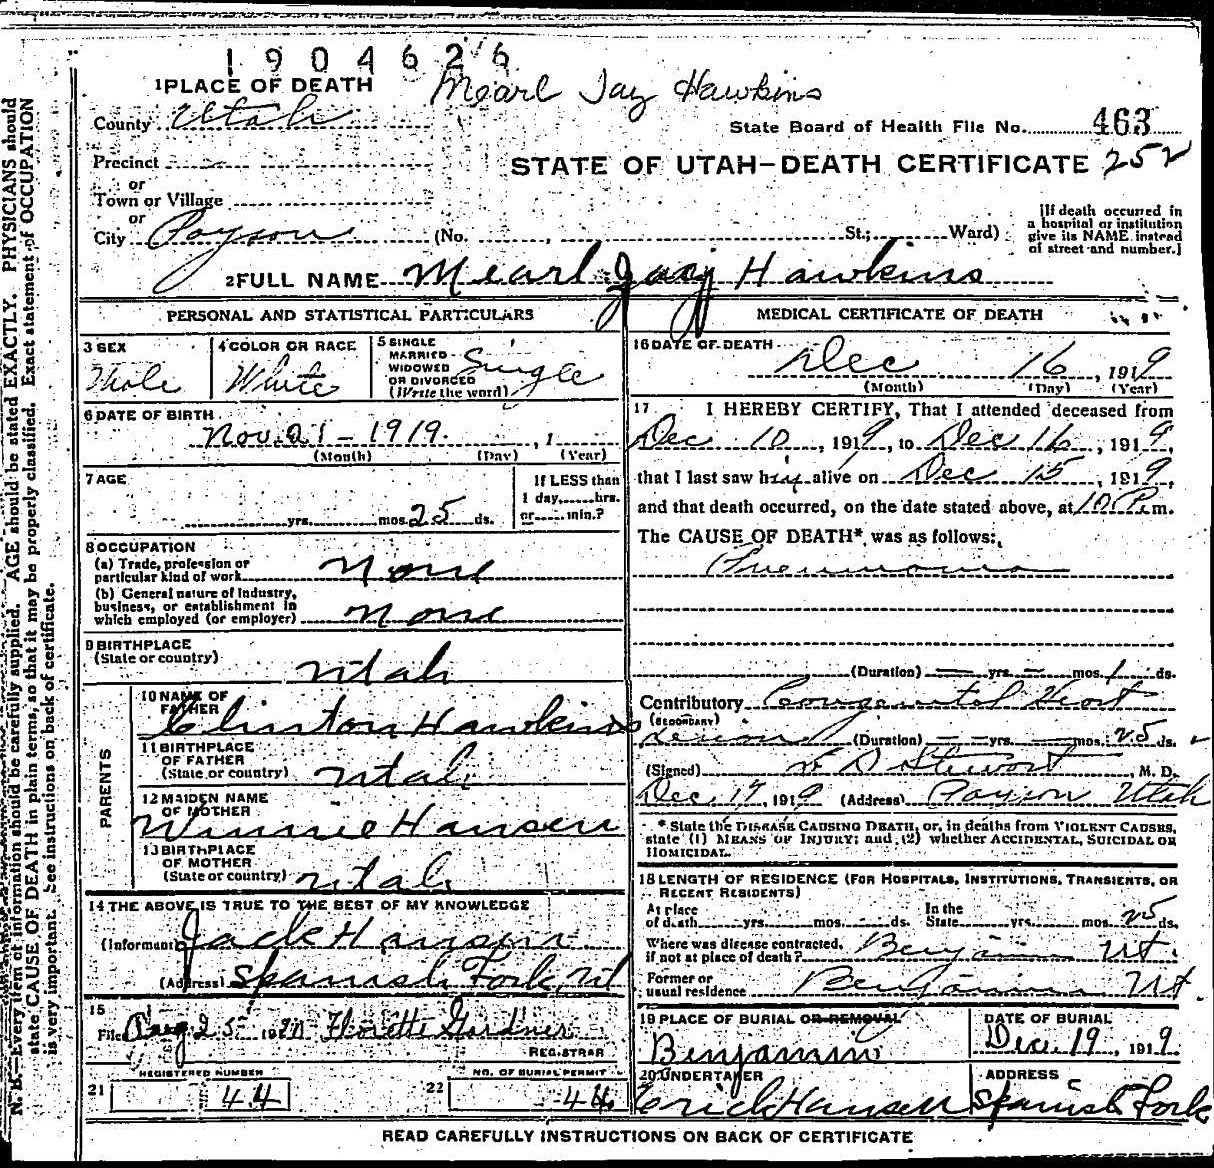 1904626
Mearl Jay Hawkins
1 PLACE OF DEATH
County Utah
State Board of Health File No. 463
Precinct
STATE OF UTAH—DEATH CERTIFICATE 252
or
Town or Village
or
City Payson (No. , St.; Ward)
[If death occurred in
a hospital or institution
give its NAME instead
of street and number.]
2 FULL NAME Mearl Jay Hawkins
PERSONAL AND STATISTICAL PARTICULARS
3 SEX
Male
4 COLOR OR RACE
White
5 SINGLE
MARRIED
WIDOWED
OR DIVORCED
(Write the word)
Single
6 DATE OF BIRTH
Nov. 21 - 1919 , 1
(Month) (Day) (Year)
7 AGE
yrs. mos. 25 ds.
If LESS than
1 day, hrs.
or min.?
8 OCCUPATION
(a) Trade, profession or
particular kind of work None
(b) General nature of Industry,
business, or establishment in
which employed (or employer) None
9 BIRTHPLACE
(State or country) Utah
PARENTS
10 NAME OF
FATHER
Clinton Hawkins
11 BIRTHPLACE
OF FATHER
(State or country) Utah
12 MAIDEN NAME
OF MOTHER
Winnie Hansen
13 BIRTHPLACE
OF MOTHER
(State or country) Utah
14 THE ABOVE IS TRUE TO THE BEST OF MY KNOWLEDGE
(Informant) Jack Hansen
(Address) Spanish Fork, Ut
15
Filed Aug 25 1920 Florette Gardner
REGISTRAR
REGISTERED NUMBER
21 44
NO. OF BURIAL PERMIT
22 44
MEDICAL CERTIFICATE OF DEATH
16 DATE OF DEATH
Dec 16 , 1919
(Month) (Day) (Year)
17 I HEREBY CERTIFY, That I attended deceased from
Dec 10 , 1919, to Dec 16 , 1919,
that I last saw him alive on Dec 15 , 1919,
and that death occurred, on the date stated above, at 10 P. m.
The CAUSE OF DEATH* was as follows:
Pneumonia
(Duration) — yrs. — mos. 1 ds.
Contributory Congenital Heart
(SECONDARY)
Lesion (Duration) — yrs. — mos. 25 ds.
(Signed) Stewart , M. D.
Dec. 17, 1919 (Address) Payson Utah
* State the DISEASE CAUSING DEATH, or, in deaths from VIOLENT CAUSES,
state (1) MEANS OF INJURY; and (2) whether ACCIDENTAL, SUICIDAL OR
HOMICIDAL.
18 LENGTH OF RESIDENCE (FOR HOSPITALS, INSTITUTIONS, TRANSIENTS, OR
RECENT RESIDENTS)
At place
of death yrs. mos. ds.
In the
State yrs. mos. 25 ds.
Where was disease contracted,
if not at place of death? Benjamin Ut.
Former or
usual residence Benjamin Ut
19 PLACE OF BURIAL OR REMOVAL
Benjamin
DATE OF BURIAL
Dec. 19 , 1919
20 UNDERTAKER
Erick Hansen
ADDRESS
Spanish Fork
READ CAREFULLY INSTRUCTIONS ON BACK OF CERTIFICATE
N. B.—Every item of information should be carefully supplied. AGE should be stated EXACTLY. PHYSICIANS should
state CAUSE OF DEATH in plain terms, so that it may be properly classified. Exact statement of OCCUPATION
is very important. See instructions on back of certificate.